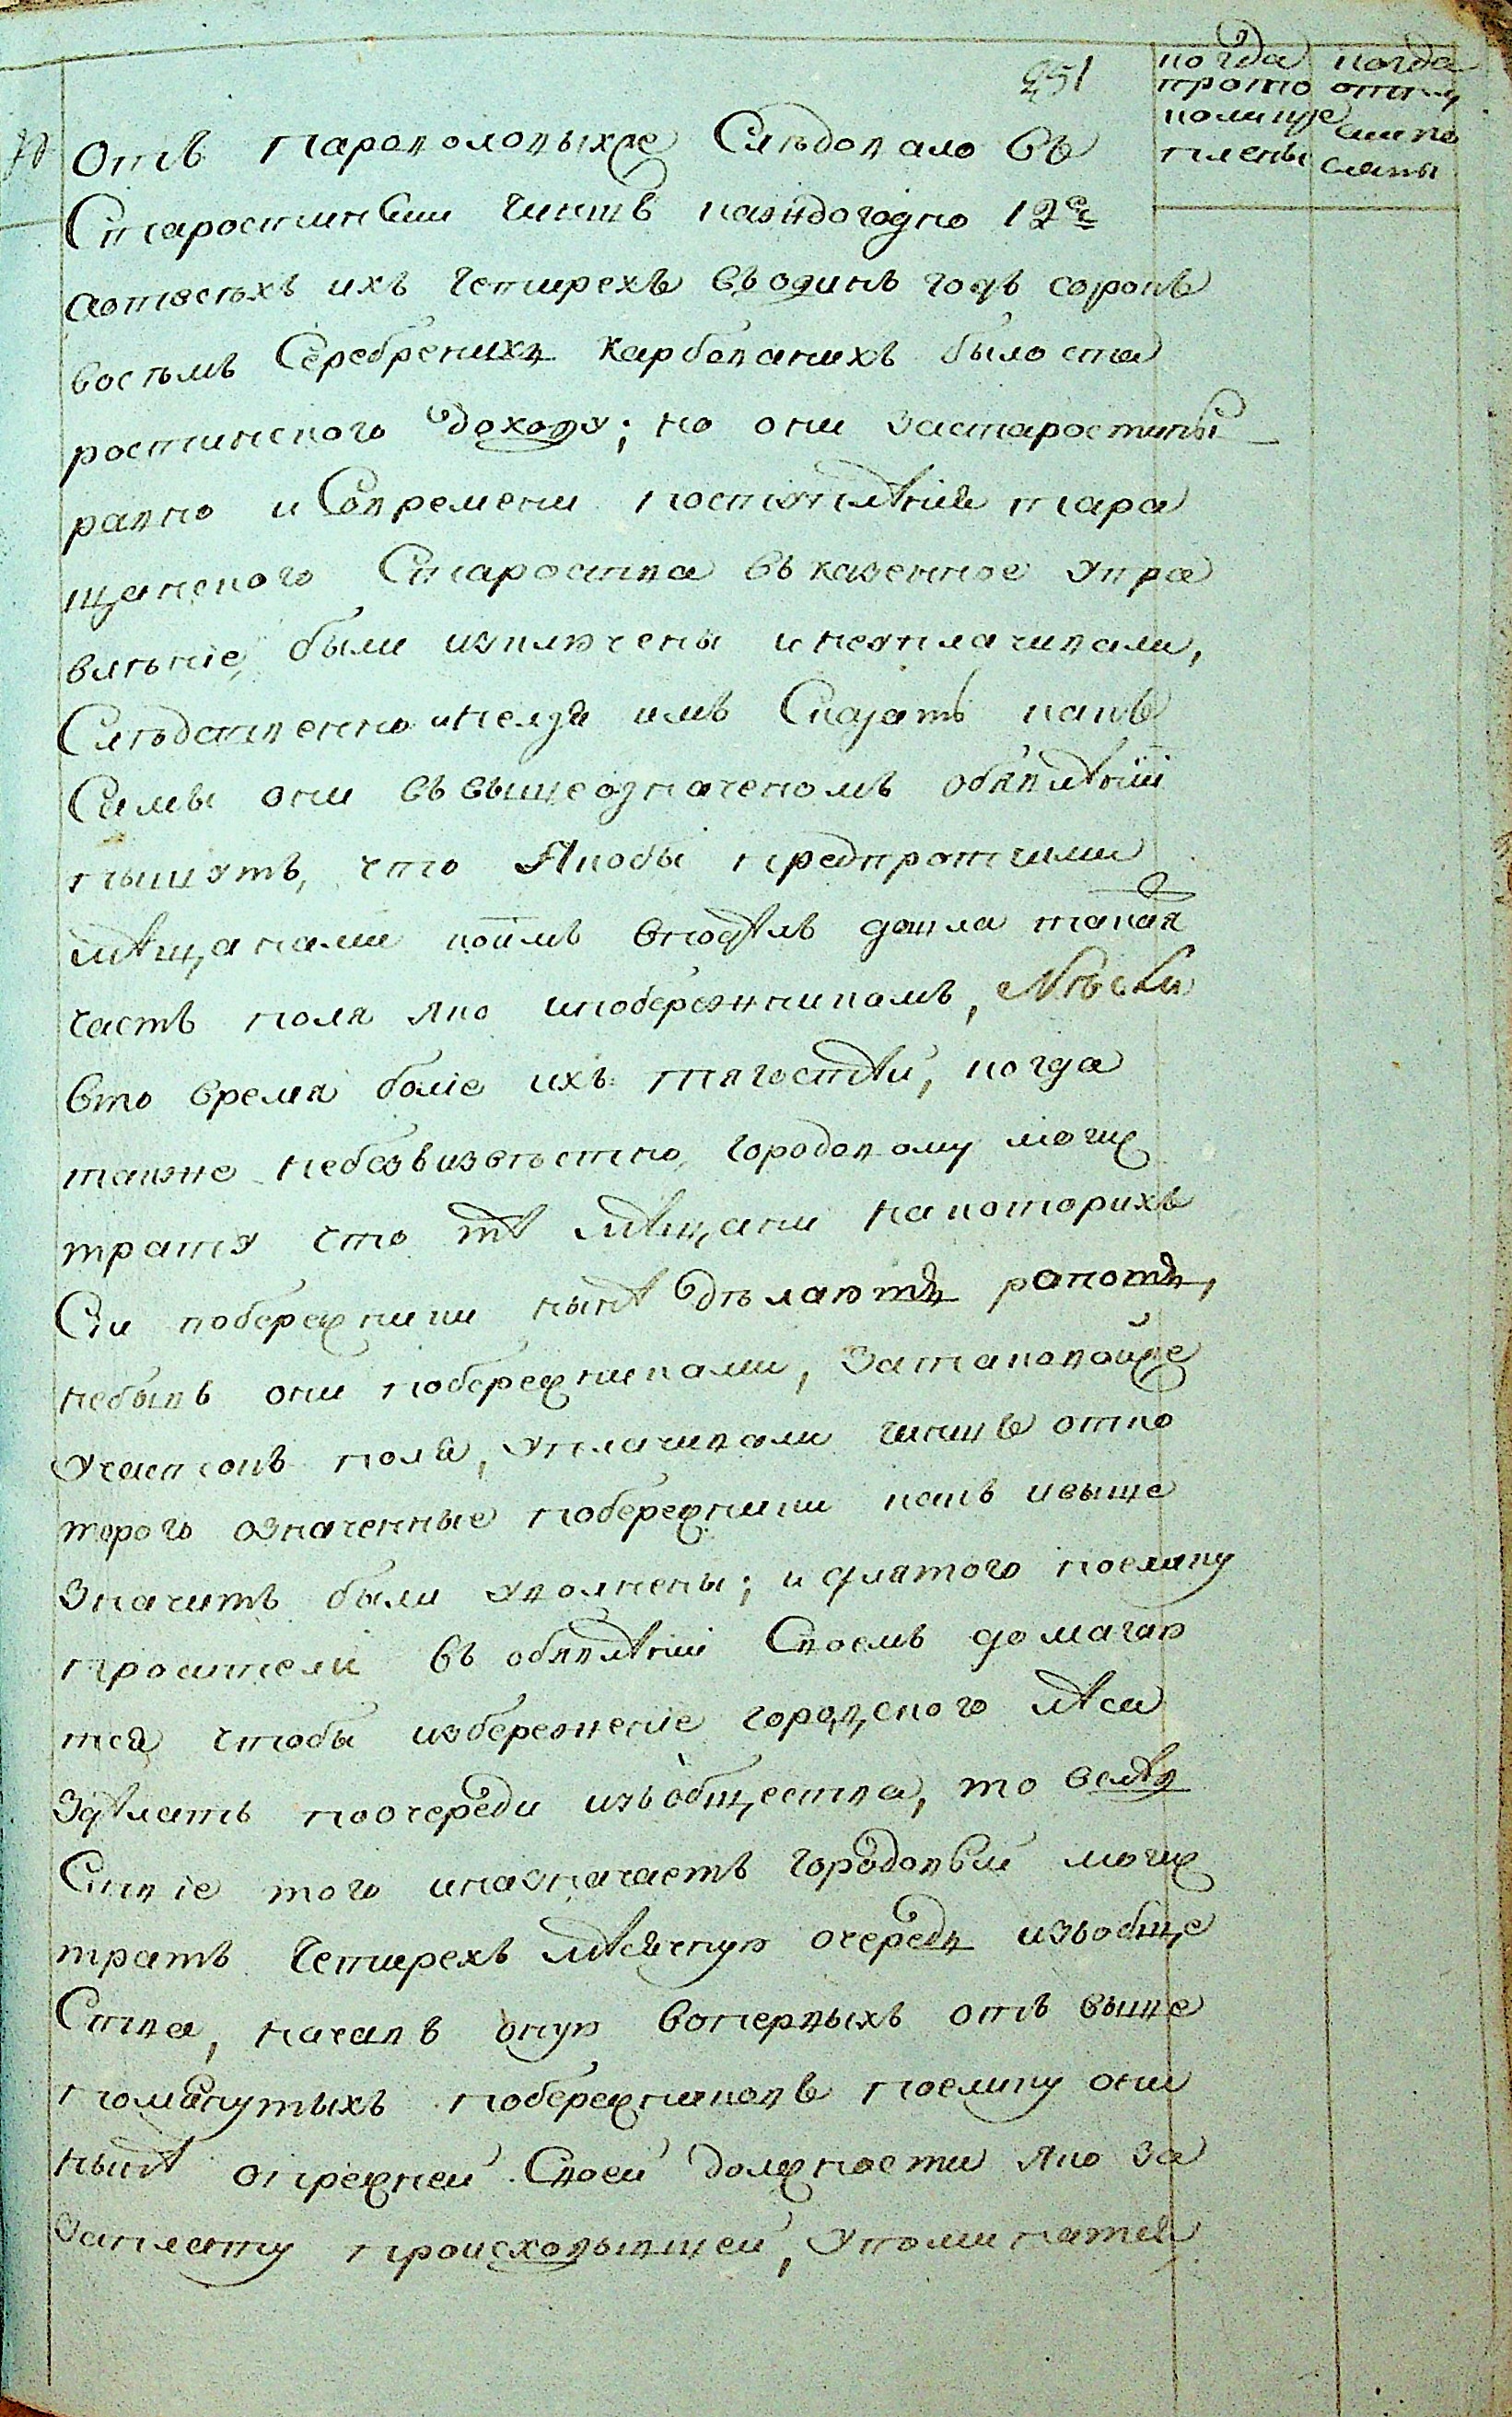 251
когда прото колируе плены
когда отпу щены по сланы
Отъ пароволовыхже Слѣдовало въ
Старостинскии чиншъ каждогодно 12 р
аотвсѣхъ ихъ четирехъ въодинъ годъ сорокъ
восѣмъ Серебрених карбованихъ было ста
ростинского доходу; но они застаростины
равно и Современи поступлѣнія тара
щанского Староства въказенное упра
влѣніе, были изключены инеуплачивали,
Слѣдственно инелзя имъ Сказать какъ
Самы они въвышеозначеномъ обявлѣніи
пышутъ, что Якобы предпротчими
мѣщанами коимъ внодѣлъ дошла такая
часть поля яко ипобережникомъ,
вто время боліе ихъ тягостѣй, когда
также небезвизвѣстно городовому магис
трату что тѣ мѣщани накоторихъ
Сіи побережники нынѣ дѣлаютъ ропотъ,
небывъ они побережниками, Затаковойже
участокъ поля, уплачивали чиншъ отко
торого означенные побережники какъ ивыще
Значитъ были уволнены; и длятого поелику
просители въ обявлѣніи Своемъ домагаю
тся чтобы избереженіе городского лѣса
здѣлать поочереди изъобщества, то вслѣд
Ствіе того иназначаетъ городовый магис
тратъ четирехъ мѣсячную очередь изъобще
Ства, начавъ оную вопервыхъ отъ выше
помянутыхъ побережниковъ поелику они
нынѣ опрежней Своей должности яко за
Заплату происходывшей, упоминатся